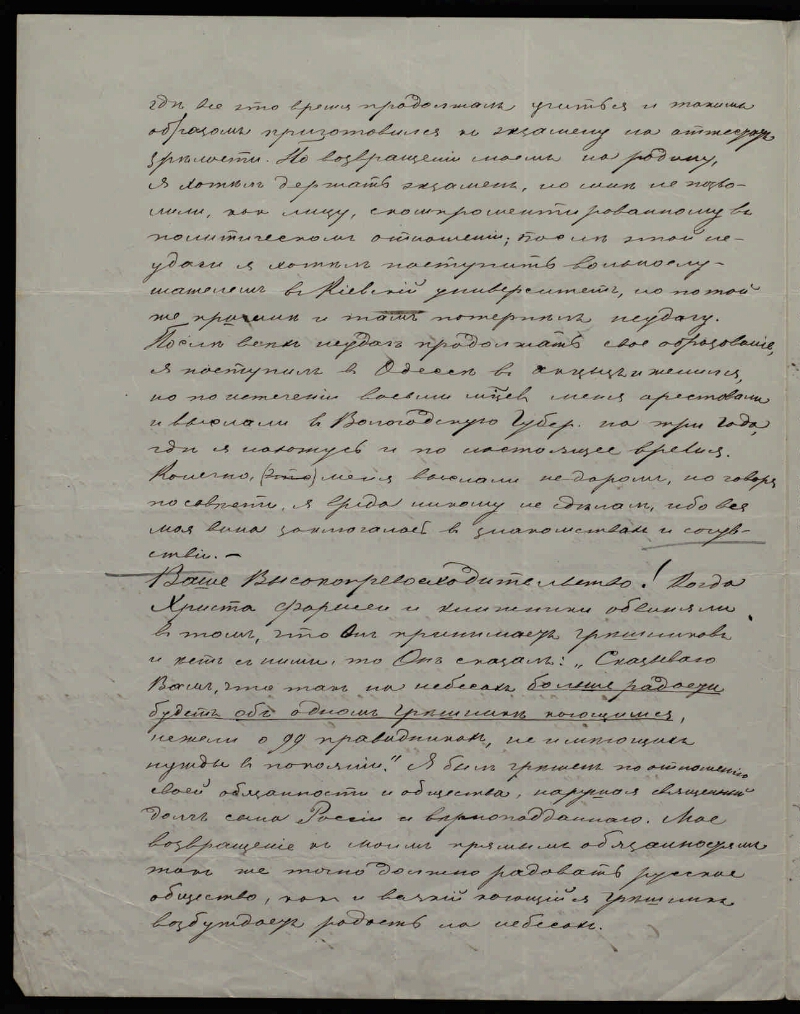 гдѣ все это время продолжалъ учиться и такимъ
образомъ приготовился къ экзамену на аттестатъ
зрѣлости. По возвращеніи моемъ на родину,
я хотѣлъ держать экзаменъ, но мнѣ не позво-
лили, какъ лицу, скомпроментированному въ
политическомъ отношеніи; послѣ этой не-
удачи я хотѣлъ поступить вольнослу-
шателемъ въ Кіевскій университетъ, но по той
же причинѣ и тамъ потерпѣлъ неудачу.
Послѣ всѣхъ неудачъ продолжать свое образованіе,
я поступилъ въ Одессѣ въ акцызъ и женился,
но по истеченіи восьми мѣсяцев меня арестовали
и выслали въ Вологодскую Губер. на три года,
гдѣ я нахожусь и по настоящее время.
Конечно, (это) меня выслали не даромъ, но говоря
по совѣсти, я вреда никому не сдѣлалъ, ибо вся
моя вина заключалась въ знакомствахъ и сочув-
ствіи. –
Ваше Высокопревосходительство! Когда
Христа фарисеи и книжники обвиняли
въ томъ, что Онъ принимаетъ грѣшниковъ
и ѣстъ съ ними, то Онъ сказалъ: „Сказываю
Вамъ, что такъ на небесахъ больше радости
будетъ объ одномъ грѣшникѣ кающимся,
нежели о 99 праведникахъ, не имѣющихъ
нужды въ покояніи." Я былъ грѣшенъ по отношенію
своей обязанности и общества, нарушая священный
долгъ сына Россіи и вѣрноподданнаго. Мое
возвращеніе къ моимъ прямымъ обязанностямъ
такъ же точно должно радовать русское
общество, какъ и всякій кающійся грѣшникъ
возбуждаетъ радость на небесахъ.